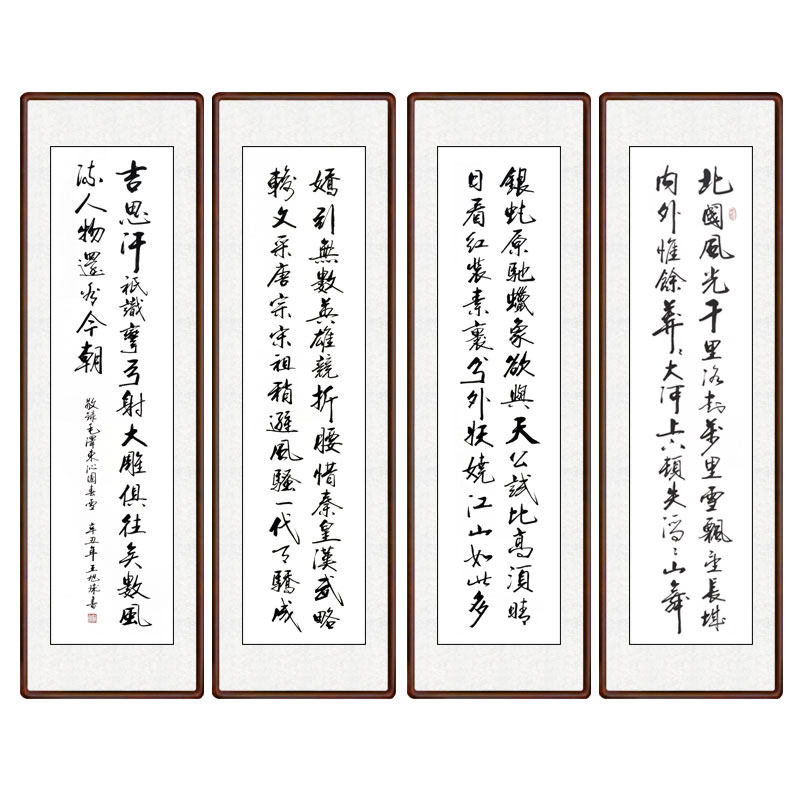 北國風光千里冰封萬里雪飄望長城
內外惟餘莽々大河上下頓失滔々山舞
銀蛇原馳蠟象欲與天公試比高須晴
日看紅裝素裹分外妖嬈江山如此多
嬌引無數英雄競折腰惜秦皇漢武略
輸文采唐宗宋祖稍遜風騷一代天驕成
吉思汗祇識彎弓射大雕俱往矣數風
流人物還看今朝
敬錄毛澤東沁園春雪 辛丑年王旭書